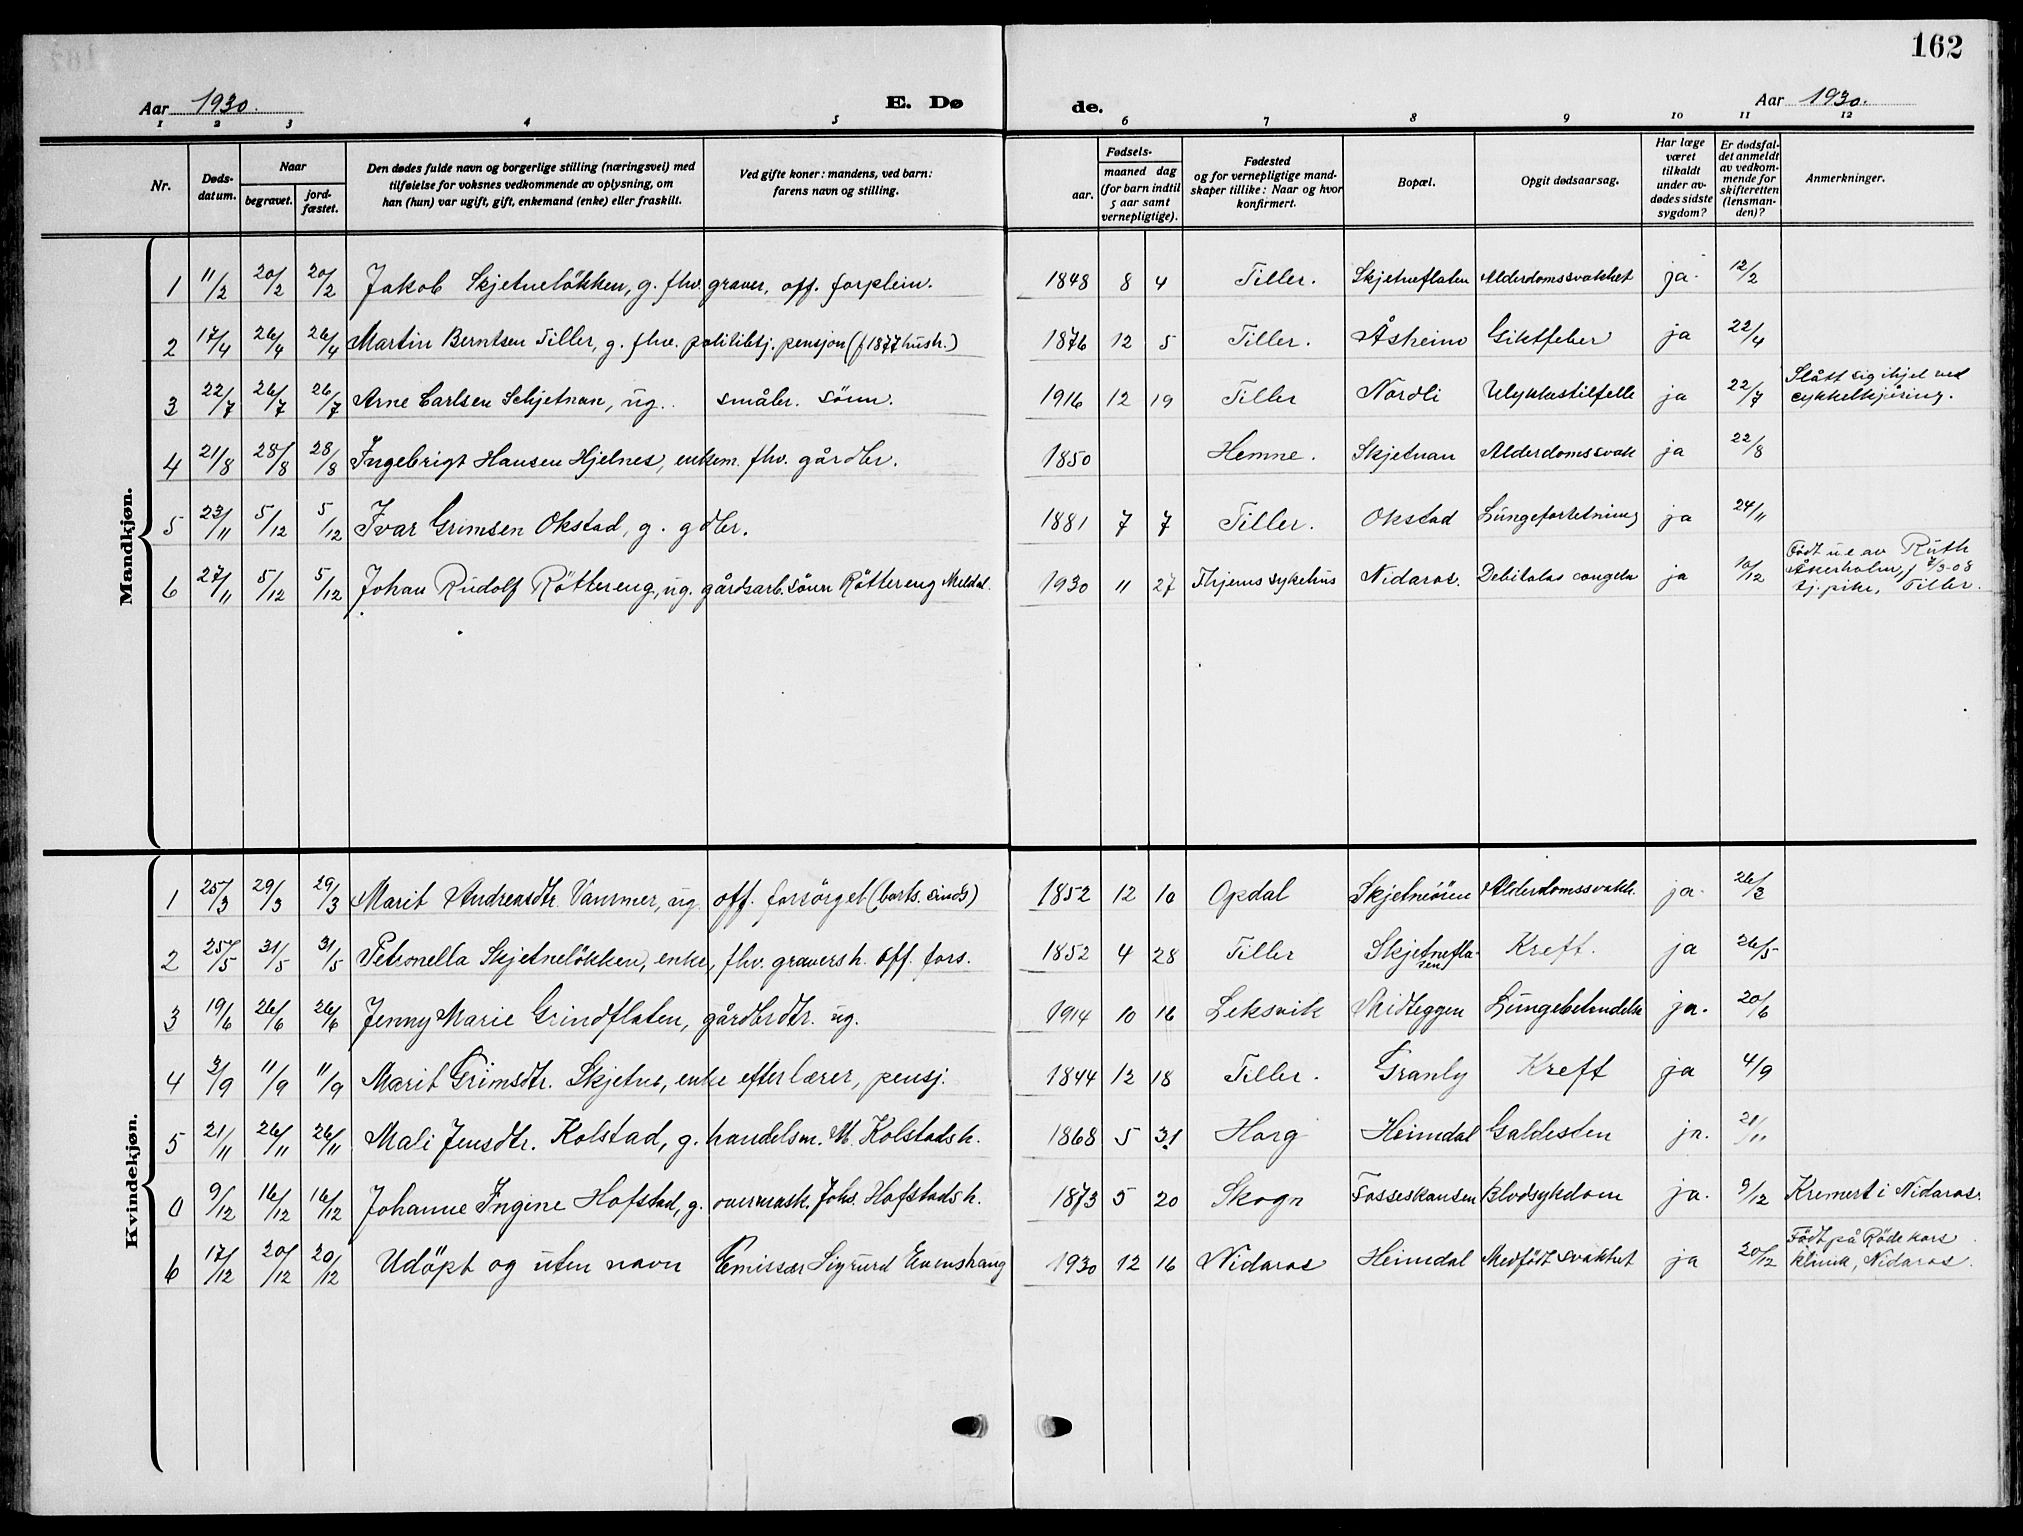 162
Aar 1930. E. Dø de. Aar 1930.
1 2 3 4 5 6 7 8 9 10 11 12
Nr. Døds-datum. Naar begravet. jord-fæstet. Den dødes fulde navn og borgerlige stilling (næringsvei) med tilføielse for voksnes vedkommende av oplysning, om han (hun) var ugift, gift, enkemand (enke) eller fraskilt. Ved gifte koner: mandens, ved barn: farens navn og stilling. Fødsels- aar. maaned dag (for barn indtil 5 aar samt vernepligtige). Fødested og for vernepligtige mandskaper tillike: Naar og hvor konfirmert. Bopæl. Opgit dødsaarsag. Har læge været tilkaldt under avdødes sidste sygdom? Er dødsfaldet anmeldt av vedkommende for skifteretten (lensmanden)? Anmerkninger.
Mandkjøn.
1 11/2 20/2 20/2 Jakob Skjetneløkken, g. fhv. graver, off. forplein. 1848 8 4 Tiller. Skjetneflaten Alderdomssvakhet ja. 12/2
2 17/4 26/4 26/4 Martin Berntsen Tiller, g. fhv. politibtj. pensjon (f 1877 hustr.) 1876 12 5 Tiller. Åsheim Giktfeber ja 22/4
3 22/7 26/7 26/7 Arne Carlsen Schjetnan, ug. småbr. sønn. 1916 12 19 Tiller Nordli Ulykkestilfelle ja 22/7 Slått sig ihjel ved cykkelkjøring.
4 21/8 28/8 28/8 Ingebrigt Hansen Hjelnes, enkem. fhv. gårdbr. 1850 Hemne. Skjetnan Alderdomssvak ja 22/8
5 23/11 5/12 5/12 Ivar Grimsen Okstad, g. gdbr. 1881 7 7 Tiller. Okstad Lungefortetning ja 24/11
6 27/11 5/12 5/12 Johan Rudolf Røttereng, ug. gårdsarb. sønn Røttereng Meldal. 1930 11 27 Thjems sykehus Nidaros. Debilalas congela ja 10/12 Født u.e av Ruth Åkerholm, f 7/3-08 tj. pike, Tiller.
Kvindekjøn.
1 25/3 29/3 29/3 Marit Andreasdtr. Vammer, ug. off. forsørget (borts. sinds) 1852 12 10 Opdal Skjetneören Alderdomssvakh. ja. 26/3
2 25/5 31/5 31/5 Petronella Skjetneløkken, enke, fhv. gravers h. off. fors. 1852 4 28 Tiller Skjetneflasen Kreft. ja 26/5
3 19/6 26/6 26/6 Jenny Marie Grindflaten, gårdbrdtr. ug. 1914 10 16 Leksvik Midteggen Lungebetendelse ja. 20/6
4 3/9 11/9 11/9 Marit Grimsdtr. Skjetne, enke efter lærer, pensj. 1844 12 18 Tiller. Granly Kreft ja 4/9
5 21/11 26/11 26/11 Mali Jensdtr. Kolstad, g. handelsm. M. Kolstads h. 1868 5 31 Horg Heimdal Galdesten ja. 21/11
0 9/12 16/12 16/12 Johanne Ingine Hofstad, g. overmask. Johs. Hofstads h. 1873 5 20 Skogn Fosseskansen Blodsykdom ja. 9/12 Kremert i Nidaros.
6 17/12 20/12 20/12 Udøpt og uten navn Emissær Sigurd Evenshaug 1930 12 16 Nidaros Heimdal Medfødt svakhet ja 20/12 Født på Røde kors klinik, Nidaros.